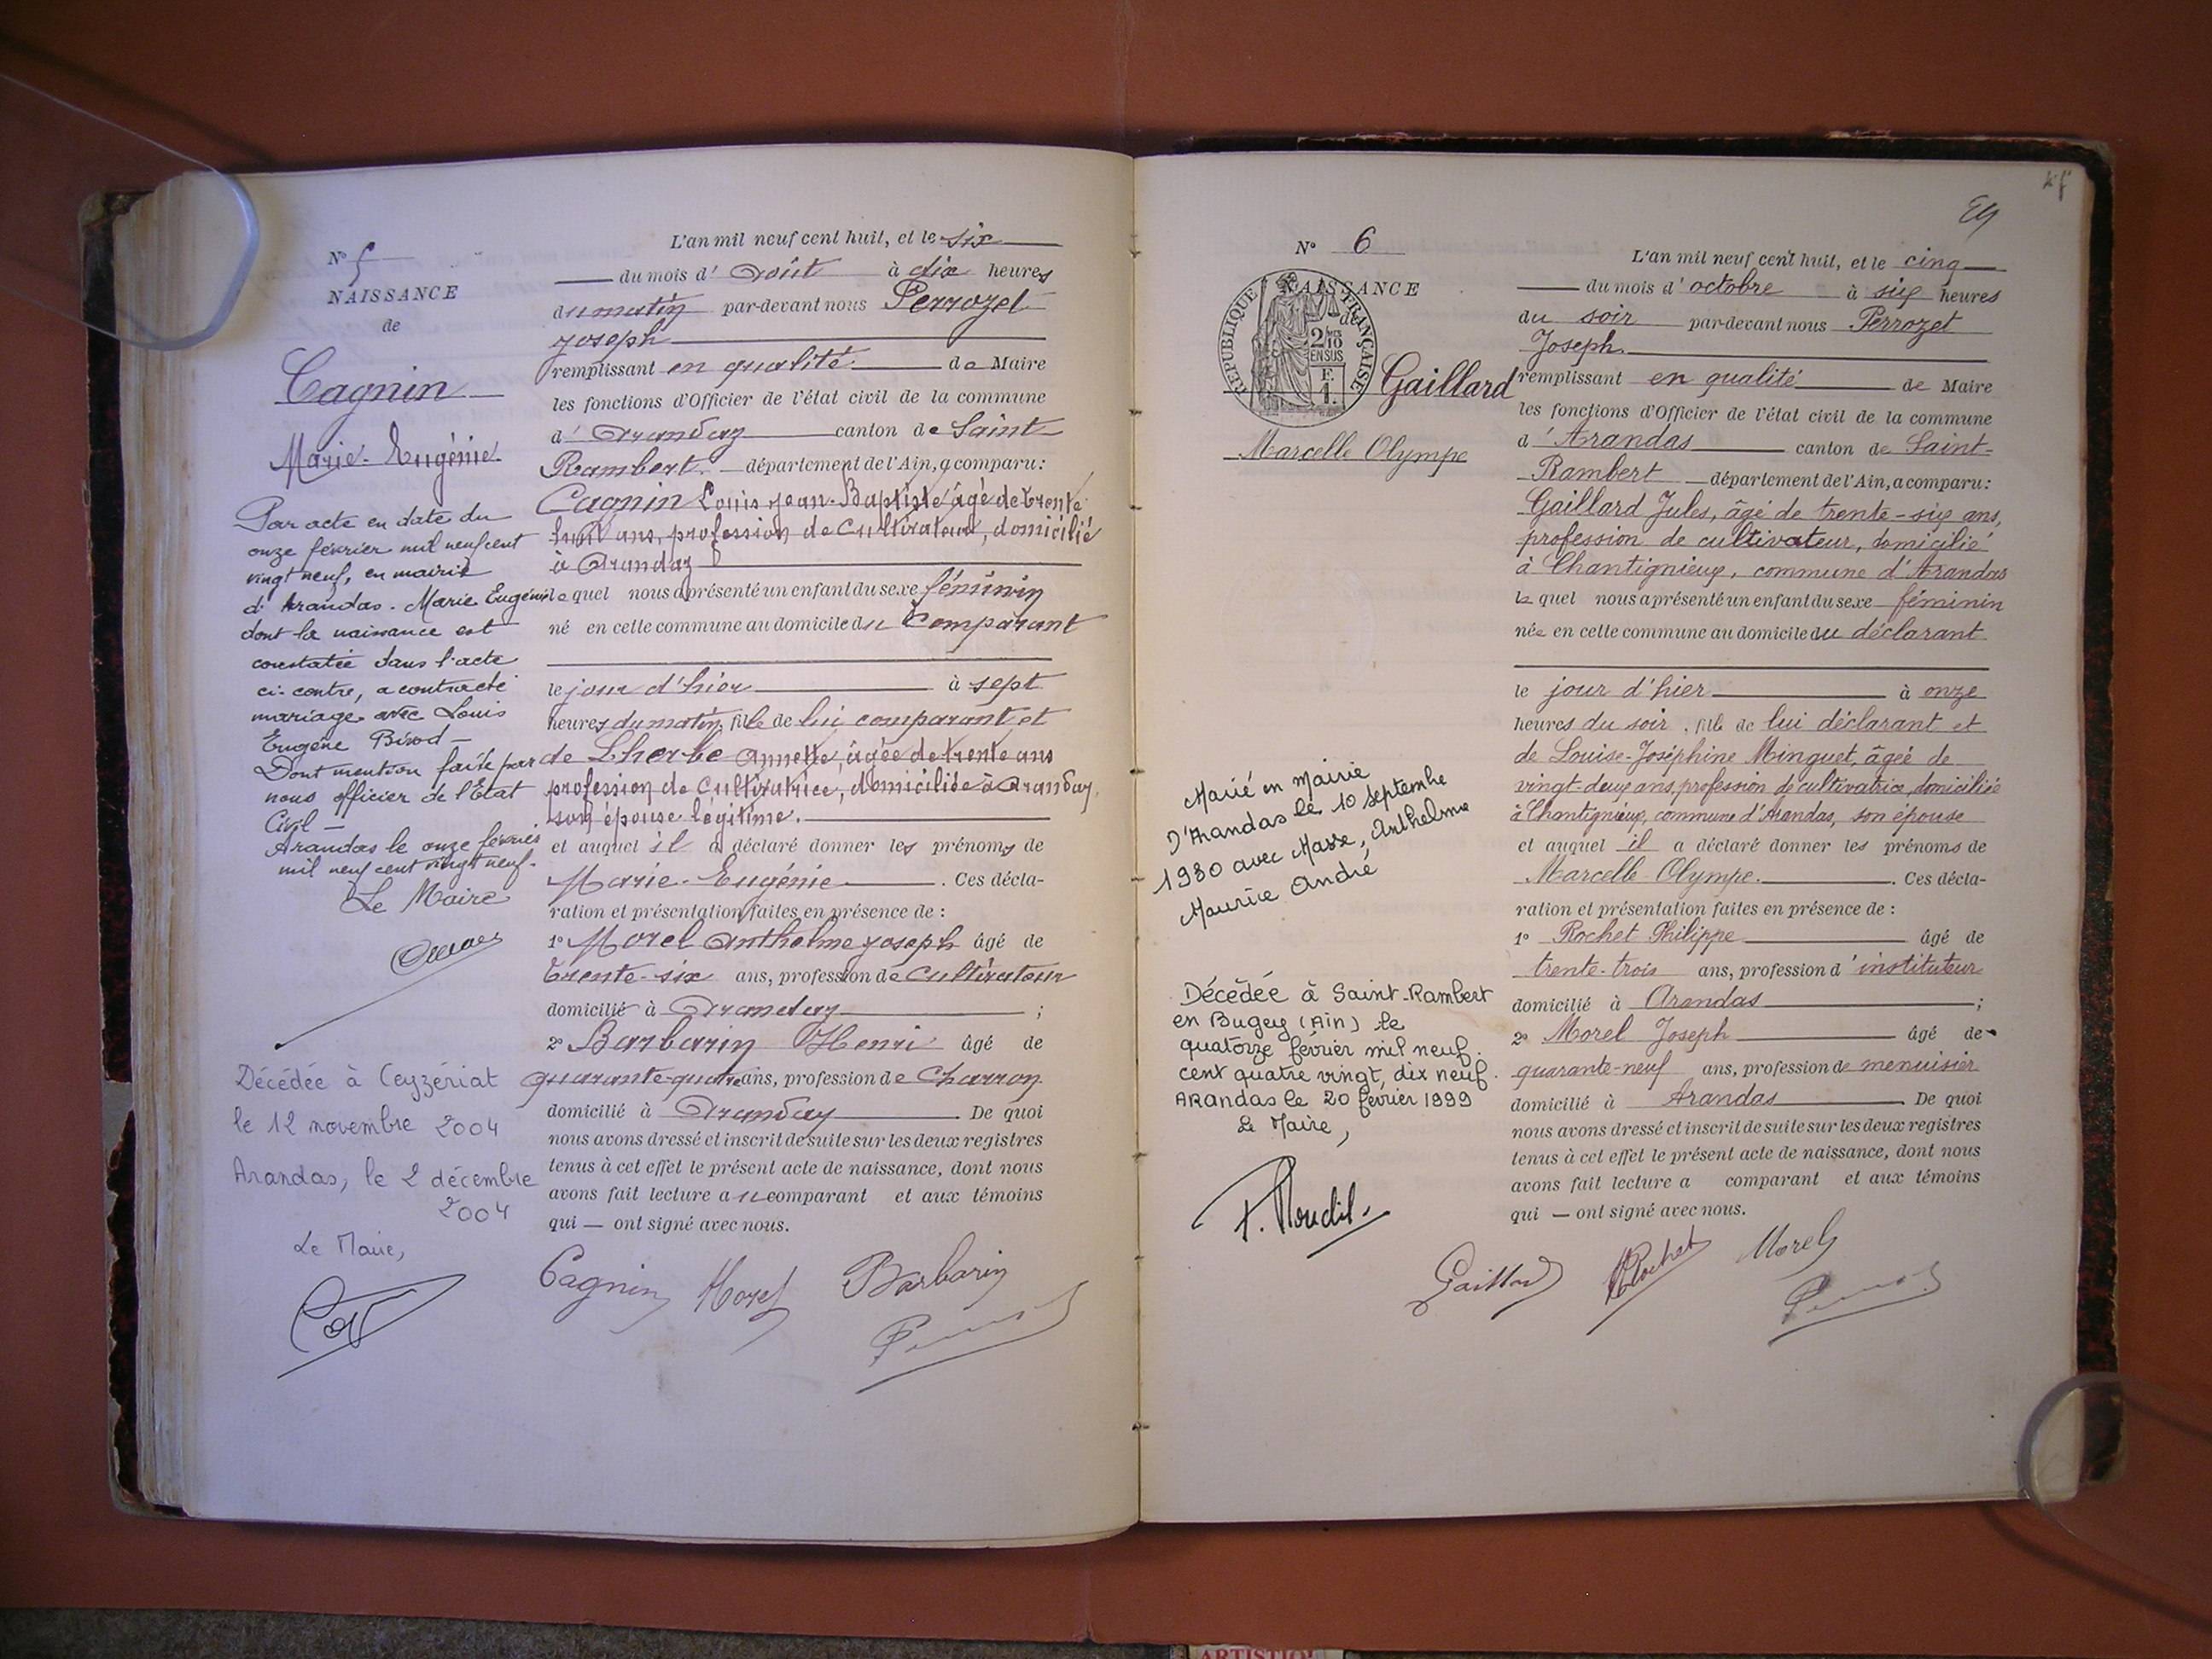 N° 5
NAISSANCE
de
Cagnin
Marie-Eugénie
Par acte en date du
onze février mil neuf cent
vingt neuf, en mairie
d'Arandas. Marie Eugénie
dont la naissance est
constatée dans l'acte
ci-contre, a contracté
mariage avec Louis
Eugène Birod —
Dont mention faite par
nous officier de l'Etat
Civil —
Arandas le onze février
mil neuf cent vingt neuf.
Le Maire
Décédée à Ceyzériat
le 12 novembre 2004
Arandas, le 2 décembre
2004
Le Maire,
L'an mil neuf cent huit, et le six
du mois d'Août à dix heures
du matin par-devant nous Perrozet
Joseph
remplissant en qualité de Maire
les fonctions d'Officier de l'état civil de la commune
d'Arandas canton de Saint
Rambert département de l'Ain, a comparu :
Cagnin Louis Jean-Baptiste âgé de trente
huit ans, profession de Cultivateur, domicilié
à Arandas
lequel nous a présenté un enfant du sexe féminin
né en cette commune au domicile du Comparant
le jour d'hier à sept
heures du matin, fille de lui comparant et
de Lherbe Annette, âgée de trente ans
profession de Cultivatrice, domiciliée à Arandas,
son épouse légitime.
et auquel il a déclaré donner les prénoms de
Marie-Eugénie. Ces décla-
ration et présentation faites en présence de :
1° Morel Anthelme Joseph âgé de
trente-six ans, profession de Cultivateur
domicilié à Arandas ;
2° Barbarin Henri âgé de
quarante-quatre ans, profession de Charron
domicilié à Arandas. De quoi
nous avons dressé et inscrit de suite sur les deux registres
tenus à cet effet le présent acte de naissance, dont nous
avons fait lecture au comparant et aux témoins
qui — ont signé avec nous.
Cagnin Morel Barbarin
N° 6
NAISSANCE
de
REPUBLIQUE FRANÇAISE
2/10
EN SUS
F.
1.
Gaillard
Marcelle Olympe
Marié en Mairie
D'Arandas le 10 Septembre
1930 avec Masse, Anthelme
Maurice André
Décédée à Saint-Rambert
en Bugey (Ain) le
quatorze février mil neuf.
cent quatre vingt, dix neuf.
Arandas le 20 février 1999
Le Maire,
L'an mil neuf cent huit, et le cinq
du mois d'octobre à six heures
du soir par-devant nous Perrozet
Joseph
remplissant en qualité de Maire
les fonctions d'Officier de l'état civil de la commune
d'Arandas canton de Saint-
Rambert département de l'Ain, a comparu :
Gaillard Jules, âgé de trente-six ans,
profession de cultivateur, domicilié
à Chantignieux, commune d'Arandas
lequel nous a présenté un enfant du sexe féminin
née en cette commune au domicile du déclarant
le jour d'hier à onze
heures du soir, fille de lui déclarant et
de Louise-Joséphine Minguet, âgée de
vingt-deux ans, profession de cultivatrice, domiciliée
à Chantignieux, commune d'Arandas, son épouse
et auquel il a déclaré donner les prénoms de
Marcelle Olympe. Ces décla-
ration et présentation faites en présence de :
1° Rochet Philippe âgé de
trente-trois ans, profession d'instituteur
domicilié à Arandas ;
2° Morel Joseph âgé de
quarante-neuf ans, profession de menuisier
domicilié à Arandas. De quoi
nous avons dressé et inscrit de suite sur les deux registres
tenus à cet effet le présent acte de naissance, dont nous
avons fait lecture a comparant et aux témoins
qui — ont signé avec nous.
Gaillard Rochet Morel